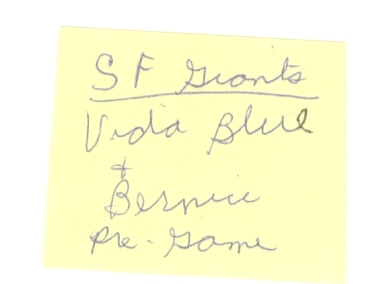 SF Giants
Vida Blue
&
Bernice
Pre-Game